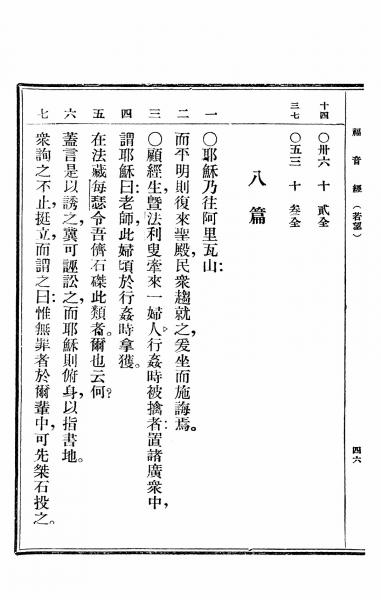 福音經（若望）
四六
十四 〇卅六 十 貳仝
三七 〇五三 十 叁仝
八篇
一 〇耶穌乃往阿里瓦山：
二 而平明則復來聖殿，民衆趨就之，爰坐而施誨焉。
三 〇顧經生暨法利叟牽來一婦人，行姦時被擒者；置諸廣衆中，
四 謂耶穌曰：老師，此婦頃於行姦時拿獲。
五 在法藏每瑟令吾儕石磔此類者。爾也云何？
六 蓋言是以誘之，冀可誣訟之。而耶穌則俯身，以指書地。
七 衆詢之不止，挺立而謂之曰：惟無罪者於爾輩中，可先桀石投之。